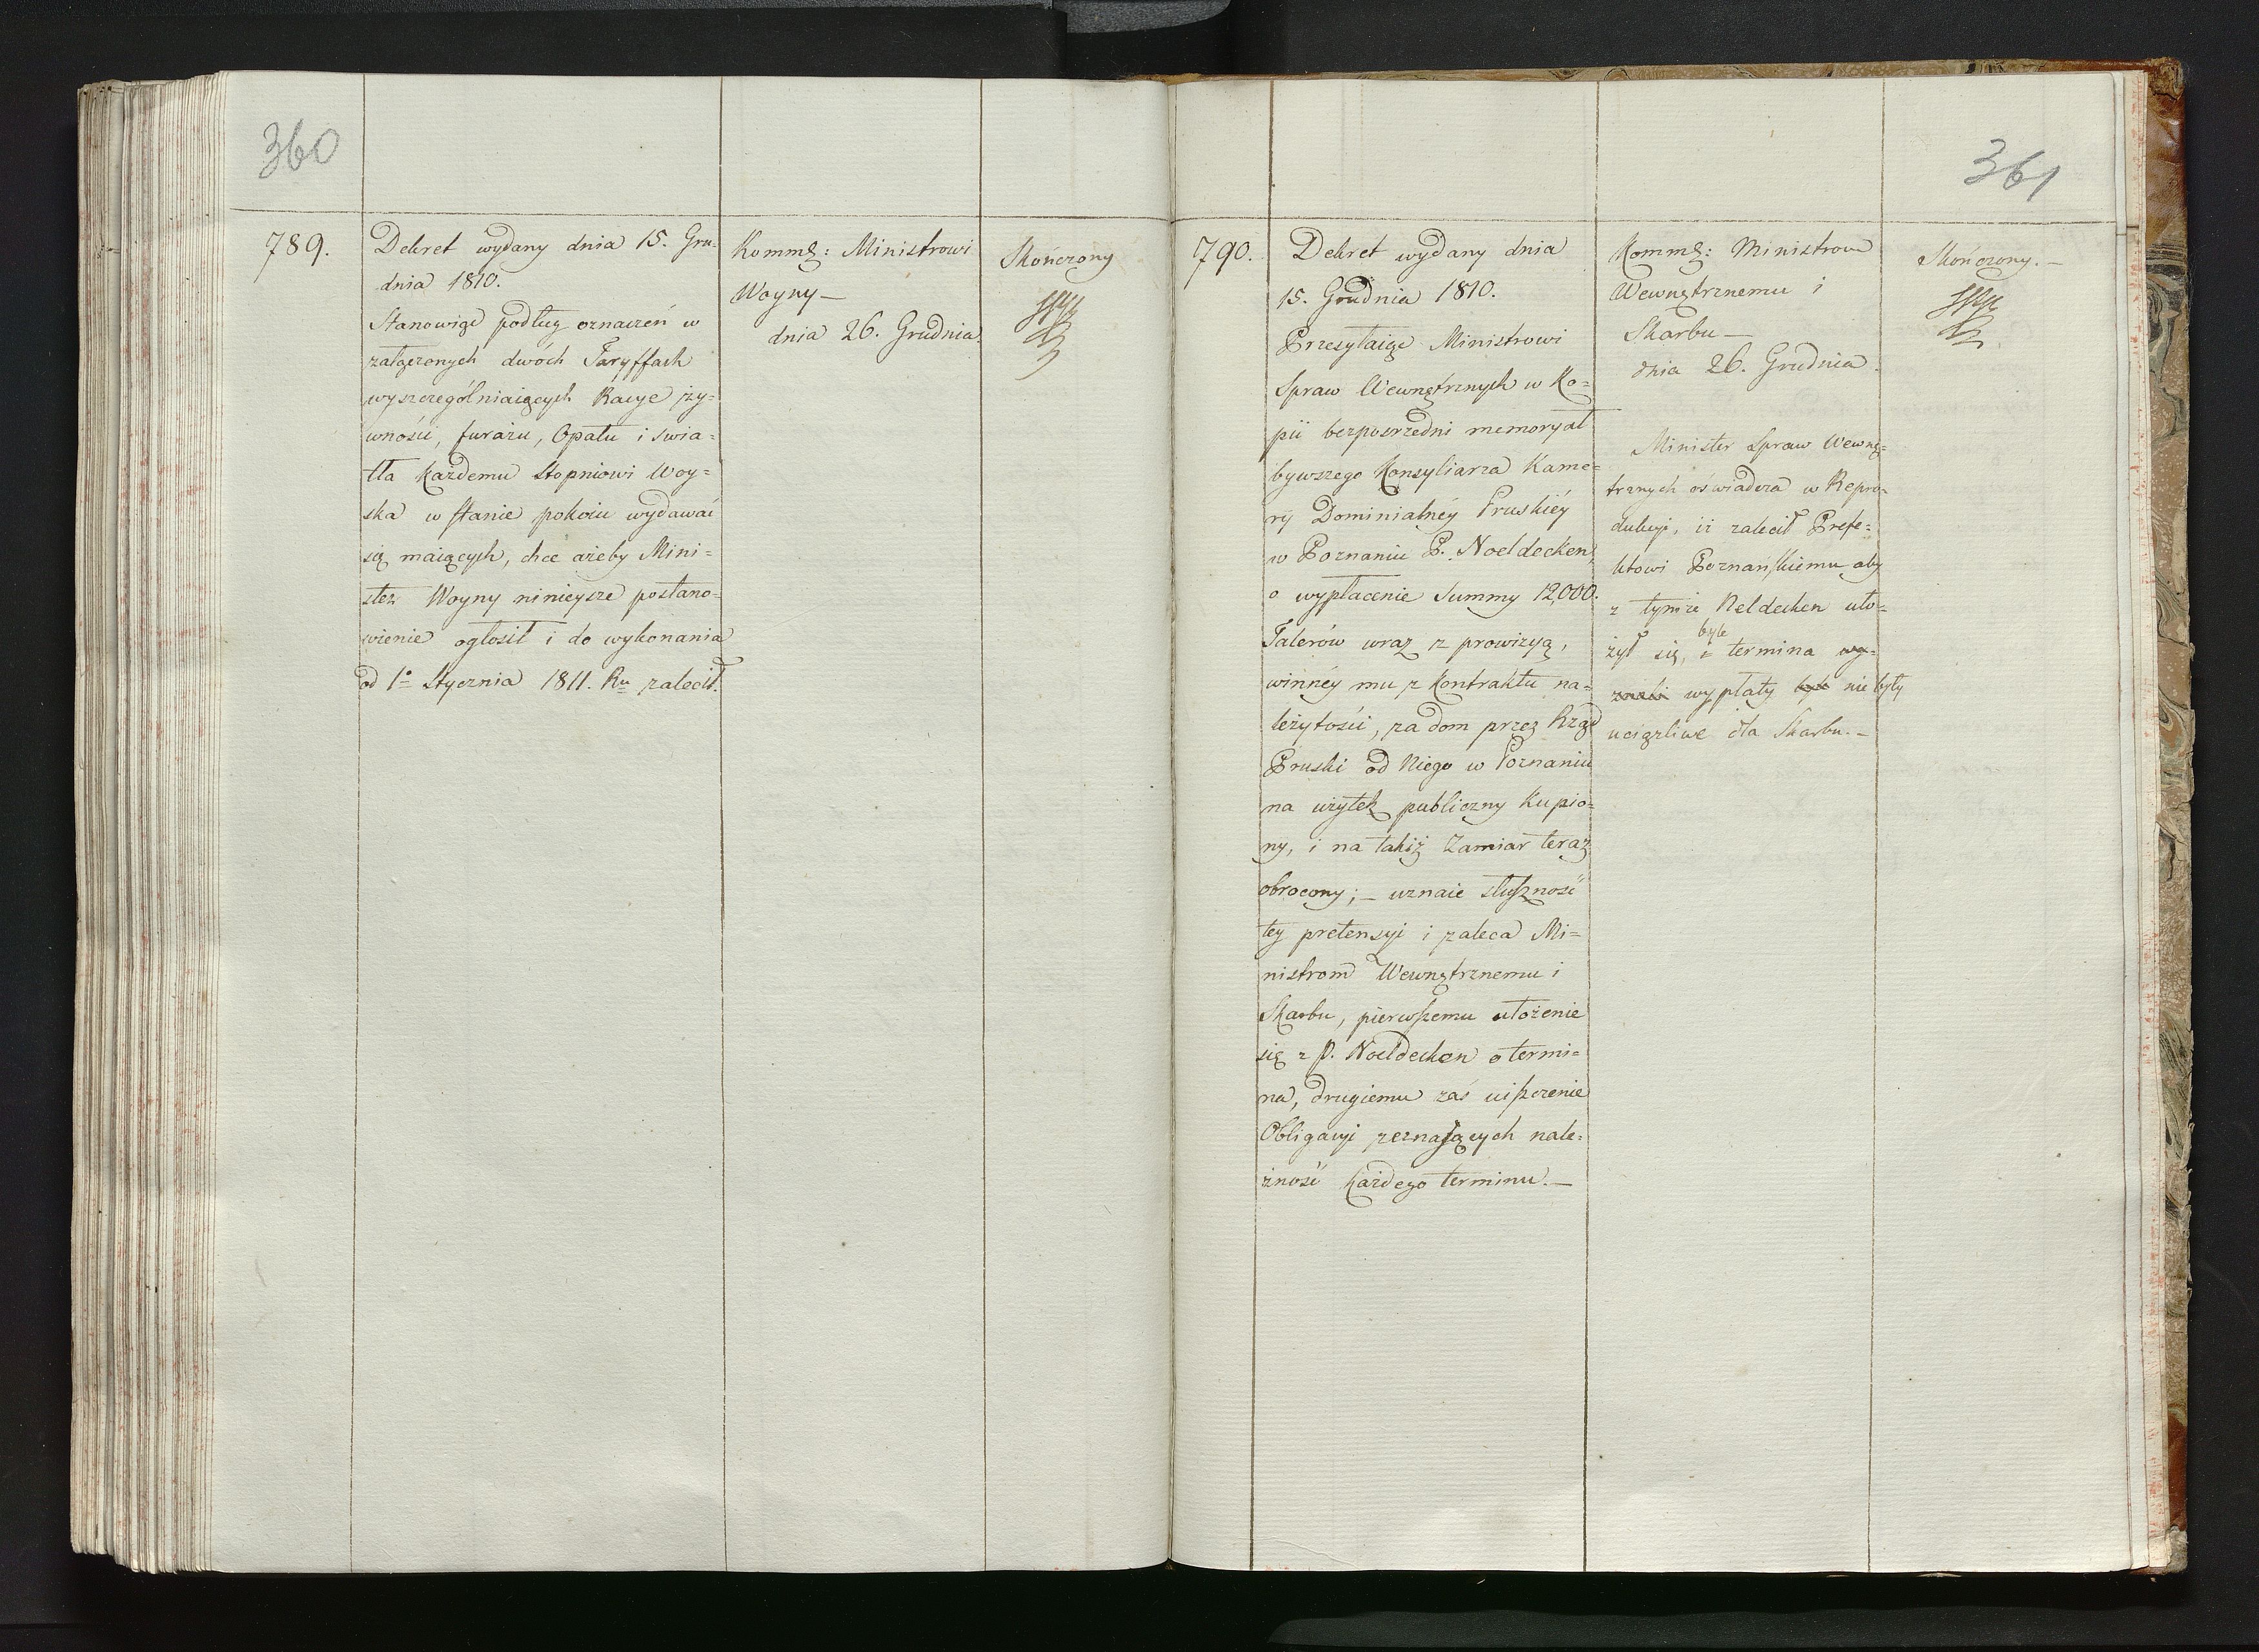 360
789.
Dekret wydany dnia 15. Gru-
dnia 1810.
Stanowiąc podług oznaczeń w
załączonych dwóch Taryffach
wyszczególniaiących Racye ży-
wności, furażu, Opału i swia-
tła każdemu Stopniowi Woy-
ska w stanie pokoiu wydawać
się maiących, chce ażeby Mini-
ster Woyny ninieysze postano-
wienie ogłosił i do wykonania
od 1o Stycznia 1811. Ru zalecił.
Kommz: Ministrowi
Woyny —
dnia 26. Grudnia.
Skończony
361
790.
Dekret wydany dnia
15. Grudnia 1810.
Przesyłaiąc Ministrowi
Spraw Wewnętrznych w Ko-
pii bezposrzedni memoryał
bywszego Konsyliarza Kame-
ry Dominialnéy Pruskiéy
w Poznaniu P. Noeldecken,
o wypłacenie Summy 12,000.
Talerów wraz z prowizyą,
winnéy mu z Kontraktu na-
leżytości, za dom przez Rząd
Pruski od Niego w Poznaniu
na użytek publiczny kupio-
ny, i na takiż Zamiar teraz
obrocony; — uznaie słuszność
tey pretensyi i zaleca Mi-
nistrom Wewnętrznemu i
Skarbu, pierwszemu ułożenie
się z P. Noeldecken o termi-
na, drugiemu zaś uiszczenie
Obligacyi zeznaiących nale-
żność każdego terminu. —
Kommz: Ministrom
Wewnętrznemu i
Skarbu —
dnia 26. Grudnia.
Minister Spraw Wewnę-
trznych oświadcza w Repro-
dukcyi, iż zalecił Prefe-
ktowi Poznańskiemu aby
z tymże Neldecken uło-
byle
żył się, i termina wy-
znali wypłaty byle nie były
uciążliwe dla Skarbu. —
Skończony. —